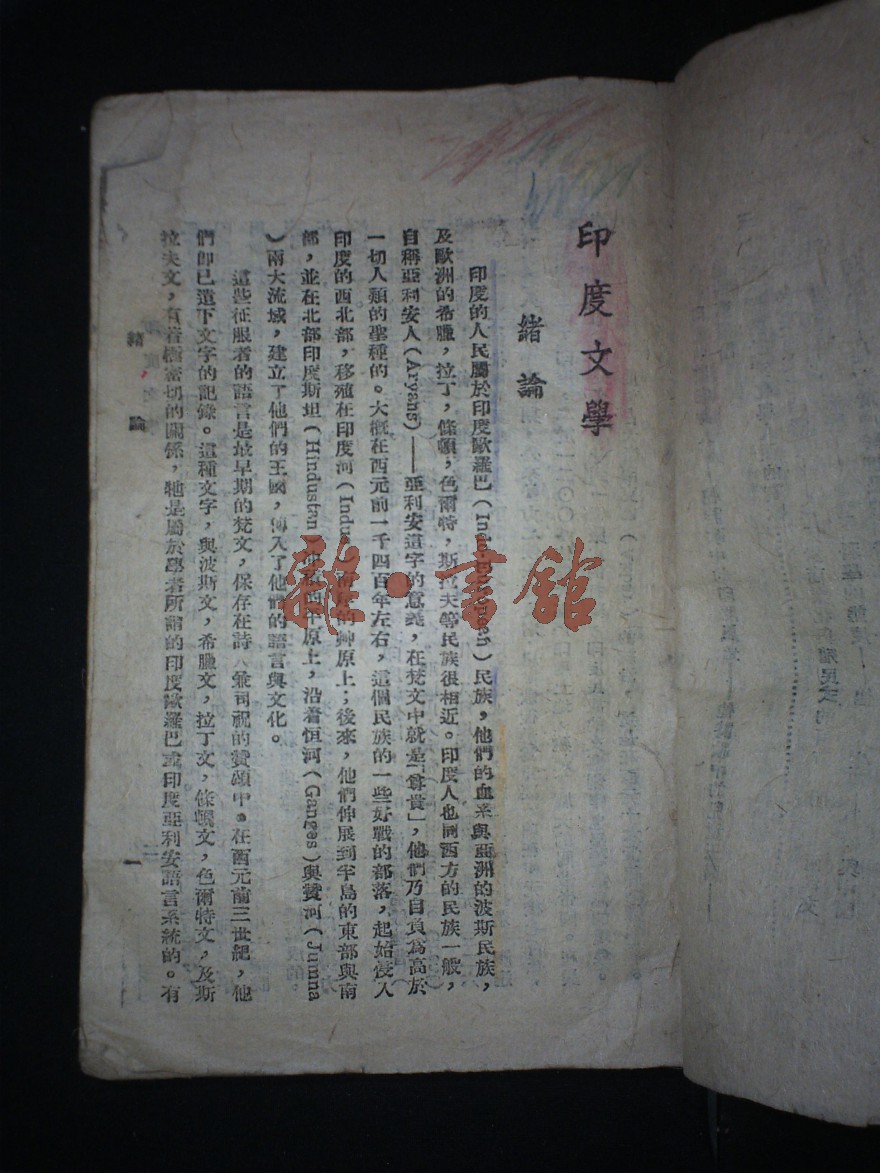 印度文學
緒論
印度的人民屬於印度歐羅巴(Indo-European)民族，他們的血系與亞洲的波斯民族，
及歐洲的希臘，拉丁，條頓，色爾特，斯拉夫等民族很相近。印度人也同西方的民族一般，
自稱亞利安人(Aryans)——亞利安這字的意義，在梵文中就是「尊貴」，他們乃自負為高於
一切人類的聖種的。大概在西元前一千四百年左右，這個民族的一些好戰的部落，起始侵入
印度的西北部，移殖在印度河(Indus)兩岸的 原上；後來，他們伸展到半島的東部與南
部，並在北部印度斯坦(Hindustan) 平原上，沿着恒河(Ganges)與贊河(Jumna
)兩大流域，建立了他們的王國，傳入了他們的語言與文化。
這些征服者的語言是最早期的梵文，保存在詩人兼司祝的贊頌中。在西元前三世紀，他
們卽已遺下文字的記錄。這種文字，與波斯文，希臘文，拉丁文，條頓文，色爾特文，及斯
拉夫文，有着極密切的關係，牠是屬於學者所謂的印度歐羅巴或印度亞利安語言系統的。有
緒論
一
龍·書館